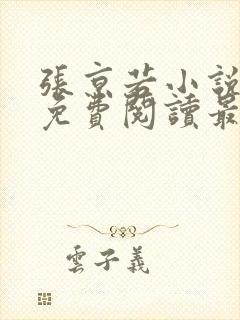 張京若小說
免費閱讀最
雲子義